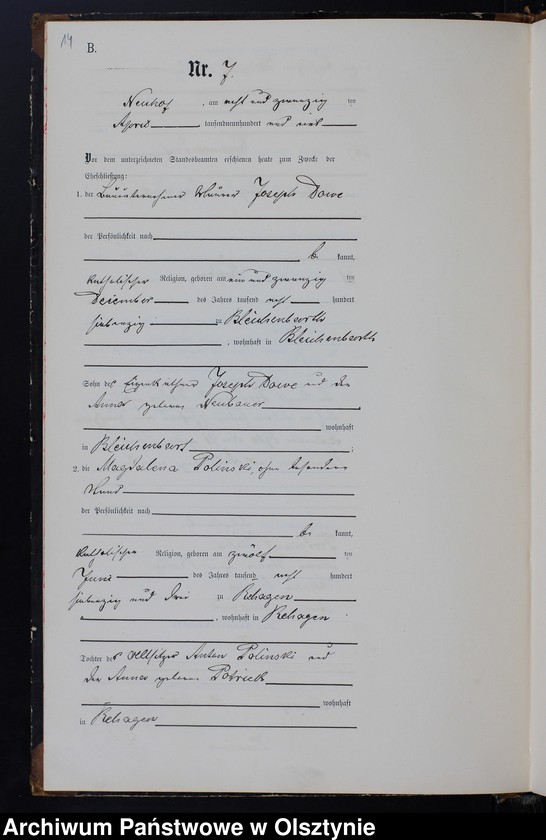 14
B.
Nr. 7.
Neuhof, am acht und zwanzig ten
April tausendneunhundert und vier
Vor dem unterzeichneten Standesbeamten erschienen heute zum Zwecke der
Eheschließung:
1. der Bauunternehmer Maurer Joseph Dowe
der Persönlichkeit nach
be kannt,
katholischer Religion, geboren am ein und zwanzig ten
Dezember des Jahres tausend acht hundert
siebenzig zu Bleichenbarth
, wohnhaft in Bleichenbarth
Sohn des Eigenkäthner Joseph Dowe und der
Anna geborene Neubauer
wohnhaft
in Bleichenbart ;
2. die Magdalena Polinski, ohne besondern
Stand
der Persönlichkeit nach
be kannt,
katholischer Religion, geboren am zwölf ten
Juni des Jahres tausend acht hundert
siebenzig und drei zu Rehagen
, wohnhaft in Rehagen
Tochter des Altsitzer Anton Polinski und
der Anna geborene
wohnhaft
in Rehagen
Archiwum Państwowe w Olsztynie